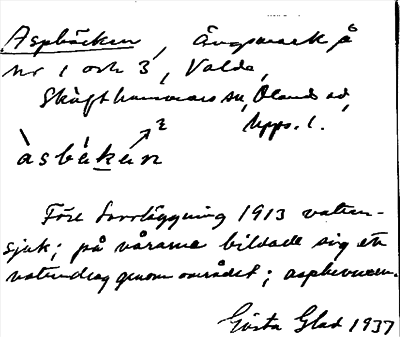 Aspbäcken, Ängsmark på
nr 1 och 3, Valda,
Skäfthammars sn, Olands hd,
Upps. l.
àsbákàn
2
Före torrläggning 1913 vatten-
sjuk; på vårarna bildade sig ett
vattendrag genom området; aspbevuxen.
Gösta Glad 1937